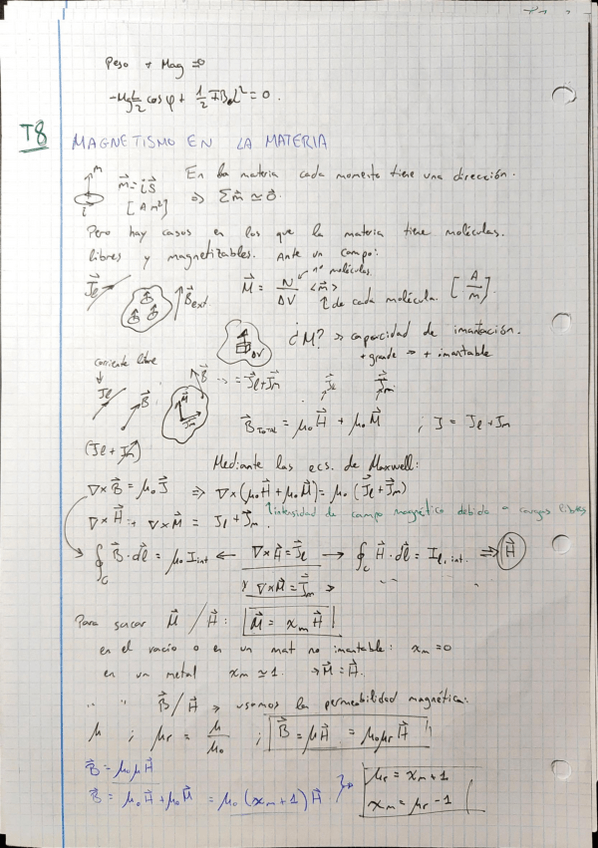 Peso + Mag ⇒
-Mg L/2 cos φ + 1/2 I B d² = 0.
T8 MAGNETISMO EN LA MATERIA
m⃗ = iS⃗ En la materia cada momento tiene una dirección.
[A m²] ⇒ Σm⃗ ≃ 0⃗.
Pero hay casos en los que la materia tiene moléculas.
libres y magnetizables. Ante un campo:
J⃗l B⃗ext M⃗ = N/ΔV <m⃗> [A/m]
nº moléculas
de cada molécula.
ΔV ¿M? ⇒ capacidad de imantación.
+ grande ⇒ + imantable
corriente libre
Jl B⃗ M⃗ Jm B⃗ ⇒ = J⃗l + J⃗m J⃗l J⃗m
B⃗TOTAL = μ₀H⃗ + μ₀M⃗ ; J = Jl + Jm
(Jl + Jm)
Mediante las ecs. de Maxwell:
∇×B⃗ = μ₀J⃗ ⇒ ∇×(μ₀H⃗ + μ₀M⃗) = μ₀(J⃗l + J⃗m)
∇×H⃗ + ∇×M⃗ = Jl + J⃗m. ↑intensidad de campo magnético debido a cargas libres
∮C B⃗·dl⃗ = μ₀ Iint ← ∇×H⃗ = J⃗l → ∮C H⃗·dl⃗ = Il,int. ⇒ H⃗
y ∇×M⃗ = J⃗m ⇒ " "
Para sacar M⃗ / H⃗: M⃗ = χm H⃗
en el vacío o en un mat no imantable: χm = 0
en un metal χm ≃ 1. ⇒ M⃗ = H⃗.
" " B⃗/H⃗ ⇒ usamos la permeabilidad magnética:
μ ; μr = μ/μ₀ ; B⃗ = μH⃗ = μ₀μr H⃗
B⃗ = μ₀μH⃗
B⃗ = μ₀H⃗ + μ₀M⃗ = μ₀(χm + 1)H⃗
μr = χm + 1
χm = μr - 1